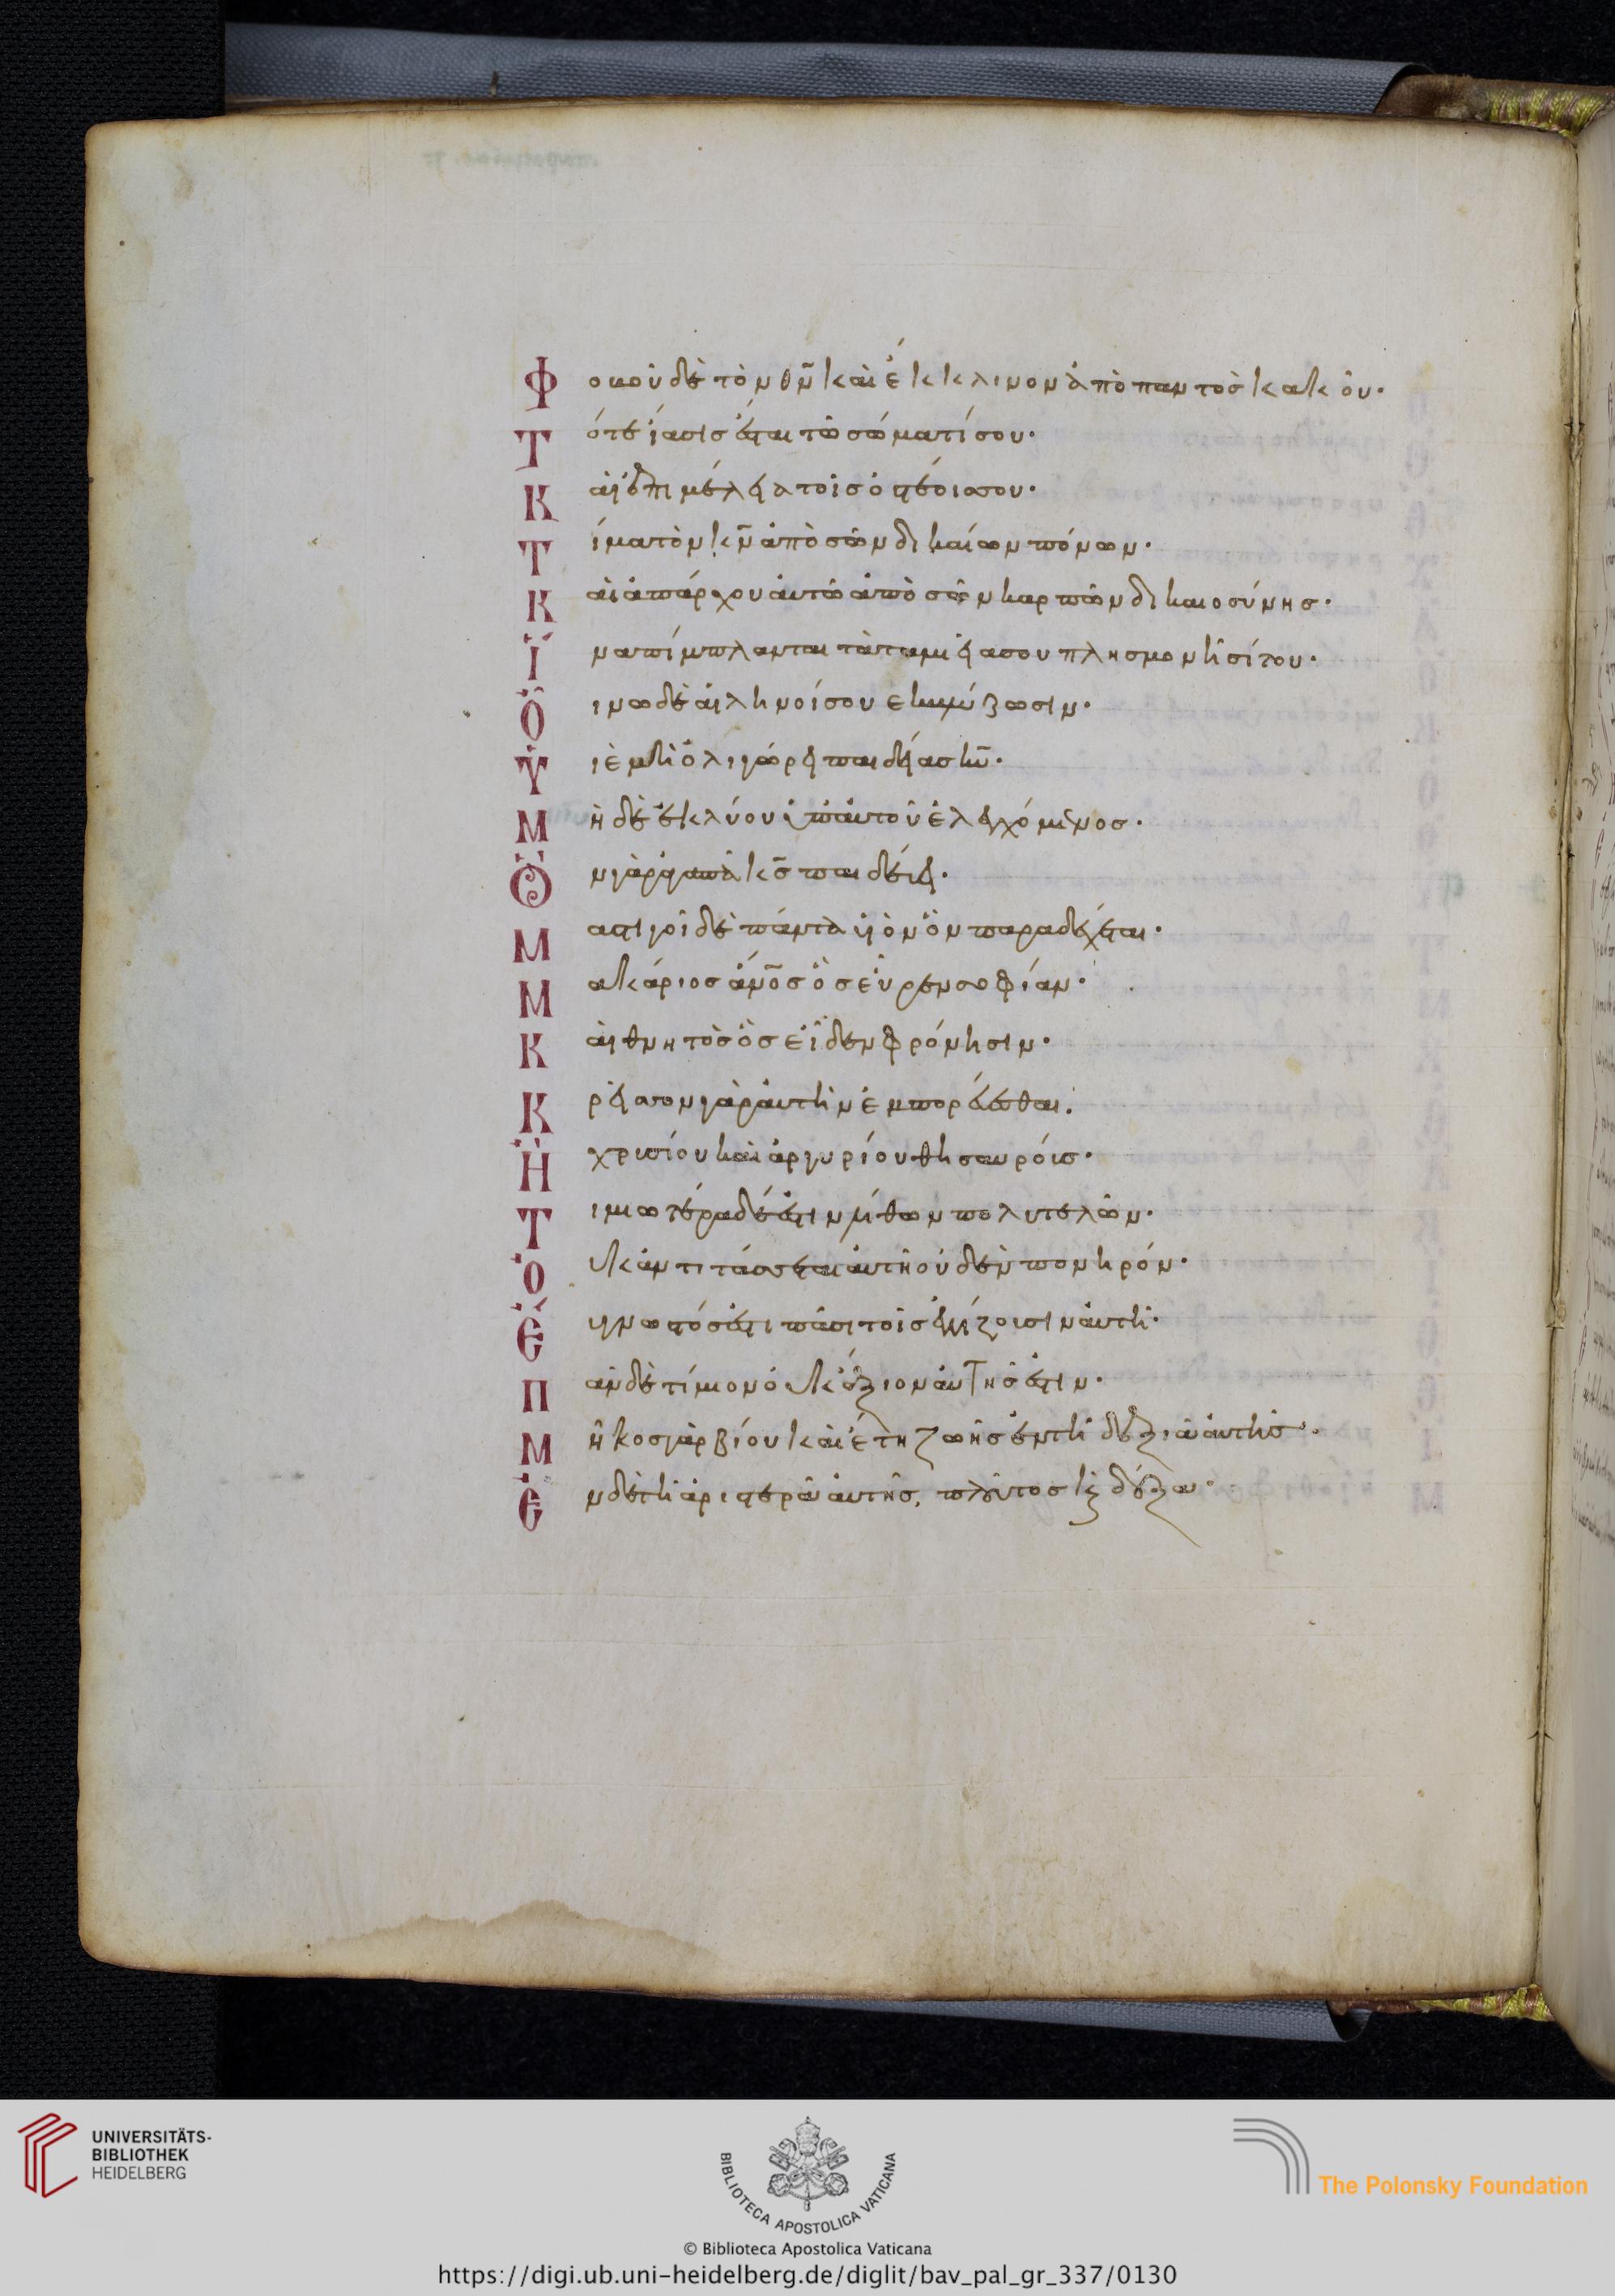 Φοβοῦ δὲ τὸν θν̄ καὶ ἔκκλινον ἀπὸ παντὸς κακοῦ·
Τότε ἴασις ἔσται τῶ σώματί σου·
Καὶ ἐπιμέλεια τοῖς ὀστέοις σου·
Τίμα τὸν κν̄ ἀπὸ σῶν δικαίων πόνων·
Καὶ ἀπάρχου αὐτῶ ἀπὸ σῶν καρπῶν δικαιοσύνης·
Ἵνα πίμπλανται τὰ ταμιεῖα σου πλησμονῆ σίτου·
Οἴνω δὲ αἱ ληνοί σου ἐκβλύζωσιν·
Υἱὲ μὴ ὀλιγώρει παιδείας κῡ·
Μὴ δὲ ἐκλύου ὑπ' αὐτοῦ ἐλεγχόμενος·
Ὃν γὰρ ἀγαπᾶ κς̄ παιδεύει·
Μαστιγοῖ δὲ πάντα υἱὸν ὃν παραδέχεται·
Μακάριος ἄνος̄ ὃς εὗρεν σοφίαν·
Καὶ θνητὸς ὃς εἶδεν φρόνησιν·
Κρεῖσσον γὰρ αὐτὴν ἐμπορεύεσθαι·
Ἢ χρυσίου καὶ ἀργυρίου θησαυρούς·
Τιμιωτέρα δέ ἐστιν λίθων πολυτελῶν·
Οὐκ ἀντιτάσσεται αὐτῆ οὐδὲν πονηρόν·
Εὔγνωστός ἐστι πᾶσι τοῖς ἐγγίζουσιν αὐτῆ·
Πᾶν δὲ τίμιον οὐκ ἄξιον αὐτῆς ἐστιν·
Μῆκος γὰρ βίου καὶ ἔτη ζωῆς ἐν τῆ δεξιᾶ αὐτῆς·
Ἐν δὲ τῆ ἀριστερᾶ αὐτῆς, πλοῦτος κ δόξα·
UNIVERSITÄTS-
BIBLIOTHEK
HEIDELBERG
BIBLIOTECA APOSTOLICA VATICANA
The Polonsky Foundation
© Biblioteca Apostolica Vaticana
https://digi.ub.uni-heidelberg.de/diglit/bav_pal_gr_337/0130